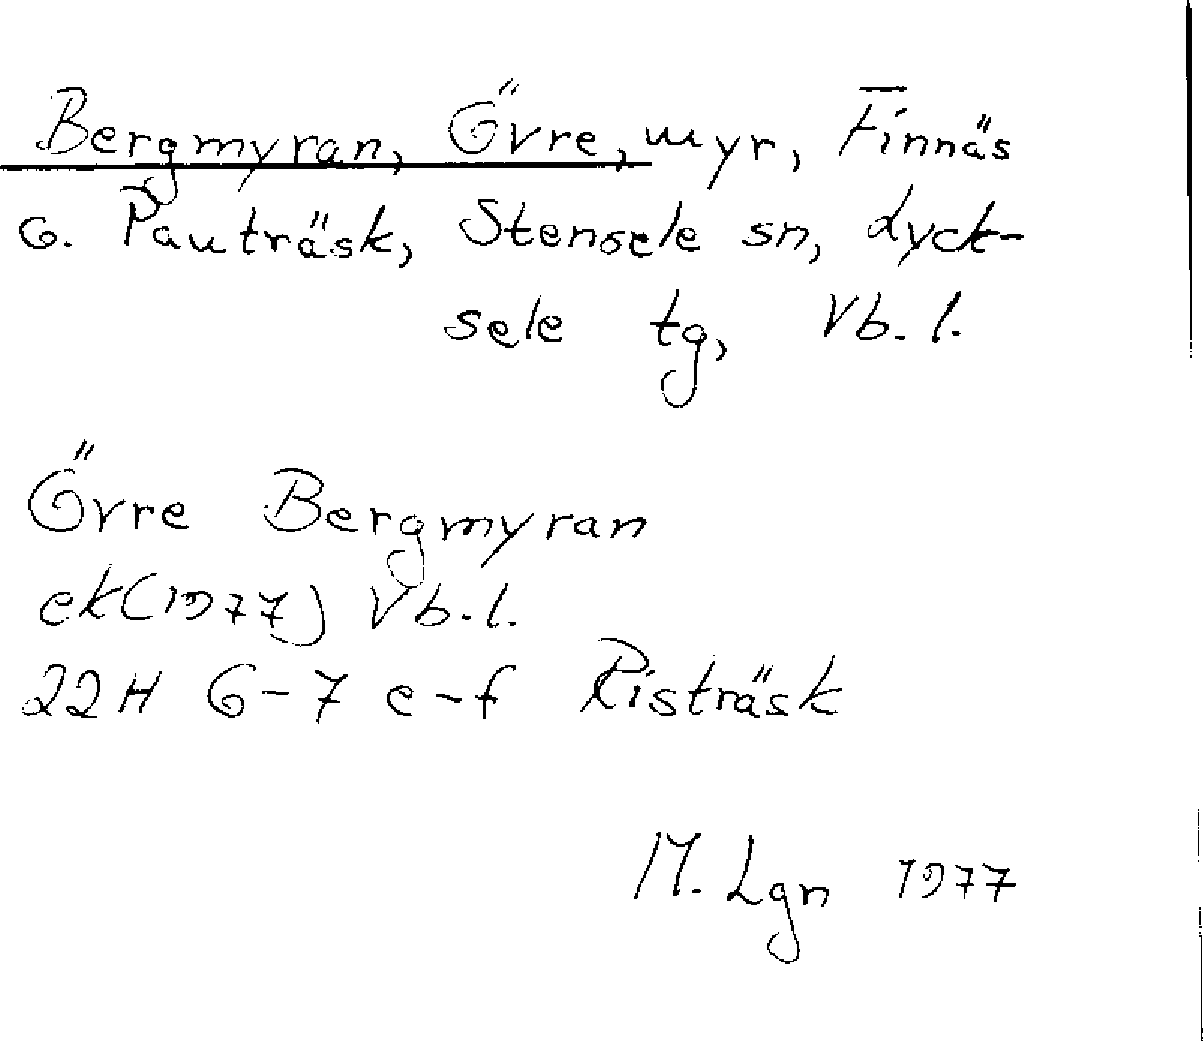 Bergmyran, Övre, myr, Finnäs
o. Pauträsk, Stensele sn, Lyck-
sele tg, Vb. l.
Övre Bergmyran
ek (1977) Vb. l.
22H 6-7 e-f Risträsk
M. Lgn 1977